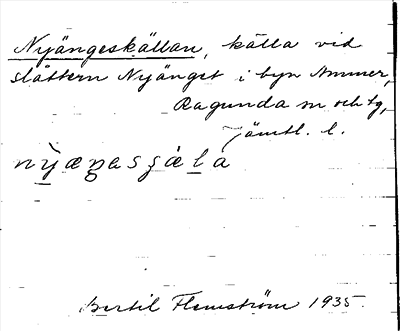 Nyängeskällan, källa vid
slåttern Nyänget i byn Ammer,
Ragunda sn och tg,
Jämtl. l.
Bertil Flemström 1935.